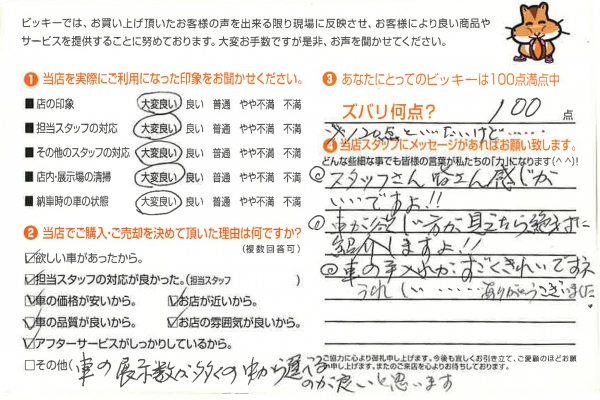 ビッキーでは、お買い上げ頂いたお客様の声を出来る限り現場に反映させ、お客様により良い商品や
サービスを提供することに努めております。大変お手数ですが是非、お声を聞かせてください。
❶ 当店を実際にご利用になった印象をお聞かせください。
■ 店の印象 大変良い 良い 普通 やや不満 不満
■ 担当スタッフの対応 大変良い 良い 普通 やや不満 不満
■ その他のスタッフの対応 大変良い 良い 普通 やや不満 不満
■ 店内・展示場の清掃 大変良い 良い 普通 やや不満 不満
■ 納車時の車の状態 大変良い 良い 普通 やや不満 不満
❷ 当店でご購入・ご売却を決めて頂いた理由は何ですか?
(複数回答可)
☑欲しい車があったから。
☑担当スタッフの対応が良かった。(担当スタッフ )
☑車の価格が安いから。 ☑お店が近いから。
☑車の品質が良いから。 ☑お店の雰囲気が良いから。
☑アフターサービスがしっかりしているから。
□その他( 車の展示数が多くの中から選べる
のが良いと思います
❸ あなたにとってのビッキーは100点満点中
ズバリ何点? 100 点
※120点といいたいけど……
❹当店スタッフにメッセージがあればお願い致します。
どんな些細な事でも皆様の言葉が私たちの「力」になります(^^)!
スタッフさん皆さん感じが
いいですよ!!
車が欲しい方が見えたら絶対に
紹介しますよ!!
車の手入れがすごくきれいですネ
うれしい……ありがとうございました
ご協力に心より御礼申し上げます。今後も宜しくお引き立て、ご愛顧のほどお願い申し上げます。またのご来店を心よりお待ちしております。